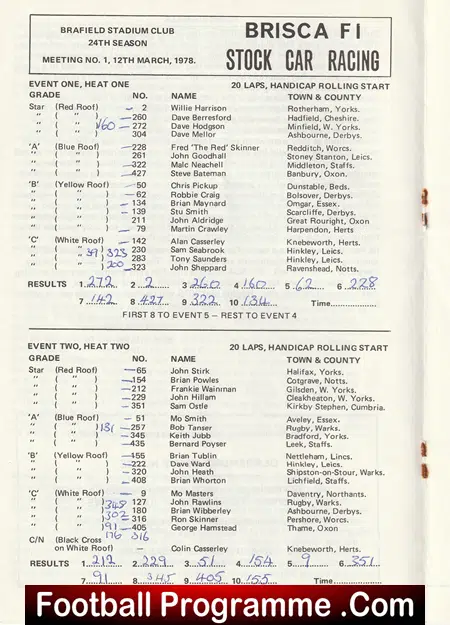 BRAFIELD STADIUM CLUB
24TH SEASON
MEETING NO. 1, 12TH MARCH, 1978.
BRISCA F1
STOCK CAR RACING
EVENT ONE, HEAT ONE 20 LAPS, HANDICAP ROLLING START
GRADE NO. NAME TOWN & COUNTY
Star (Red Roof) 2 Willie Harrison Rotherham, Yorks.
" ( " ) 260 Dave Berresford Hadfield, Cheshire.
" ( " ) 160 272 Dave Hodgson Minfield, W. Yorks.
" ( " ) 304 Dave Mellor Ashbourne, Derbys.
'A' (Blue Roof) 228 Fred 'The Red' Skinner Redditch, Worcs.
" ( " ) 261 John Goodhall Stoney Stanton, Leics.
" ( " ) 322 Malc Neachell Middleton, Staffs.
" ( " ) 427 Steve Bateman Banbury, Oxon.
'B' (Yellow Roof) 50 Chris Pickup Dunstable, Beds.
" ( " ) 62 Robbie Craig Bolsover, Derbys.
" ( " ) 134 Brian Maynard Omgar, Essex.
" ( " ) 139 Stu Smith Scarcliffe, Derbys.
" ( " ) 211 John Aldridge Great Rouright, Oxon
" ( " ) 79 Martin Crawley Harpendon, Herts
'C' (White Roof) 142 Alan Casserley Knebeworth, Herts.
" ( " 39 ) 323 230 Sam Seabrook Hinkley, Leics.
" ( " ) 283 Tony Saunders Hinkley, Leics.
" ( " ) 200 323 John Sheppard Ravenshead, Notts.
RESULTS 1. 272 2. 2 3. 260 4. 160 5. 62 6. 228
7. 142 8. 427 9. 322 10. 134 Time
FIRST 8 TO EVENT 5 – REST TO EVENT 4
EVENT TWO, HEAT TWO 20 LAPS, HANDICAP ROLLING START
GRADE NO. NAME TOWN & COUNTY
Star (Red Roof) 65 John Stirk Halifax, Yorks.
" ( " ) 154 Brian Powles Cotgrave, Notts.
" ( " ) 212 Frankie Wainman Gilsden, W. Yorks.
" ( " ) 229 John Hillam Cleakheaton, W. Yorks.
" ( " ) 351 Sam Ostle Kirkby Stephen, Cumbria.
'A' (Blue Roof) 51 Mo Smith Aveley, Essex.
" ( " ) 131 257 Bob Tanser Rugby, Warks.
" ( " ) 345 Keith Jubb Bradford, Yorks.
" ( " ) 435 Bernard Poyser Leek, Staffs.
'B' (Yellow Roof) 155 Brian Tublin Nettleham, Lincs.
" ( " ) 222 Dave Ward Hinkley, Leics.
" ( " ) 320 John Heath Shipston-on-Stour, Warks.
" ( " ) 408 Brian Whorton Lichfield, Staffs.
'C' (White Roof) 9 Mo Masters Daventry, Northants.
" ( " ) 348 127 John Rawlins Rugby, Warks.
" ( " ) 302 180 Brian Wibberley Ashbourne, Derbys.
" ( " ) 316 Ron Skinner Pershore, Worcs.
" ( " ) 91 405 George Hamstead Thame, Oxon
C/N (Black Cross 176 316
on White Roof) – Colin Casserley Knebeworth, Herts.
RESULTS 1. 212 2. 229 3. 51 4. 154 5. 9 6. 351
7. 91 8. 345 9. 405 10. 155 Time
Football Programme .Com